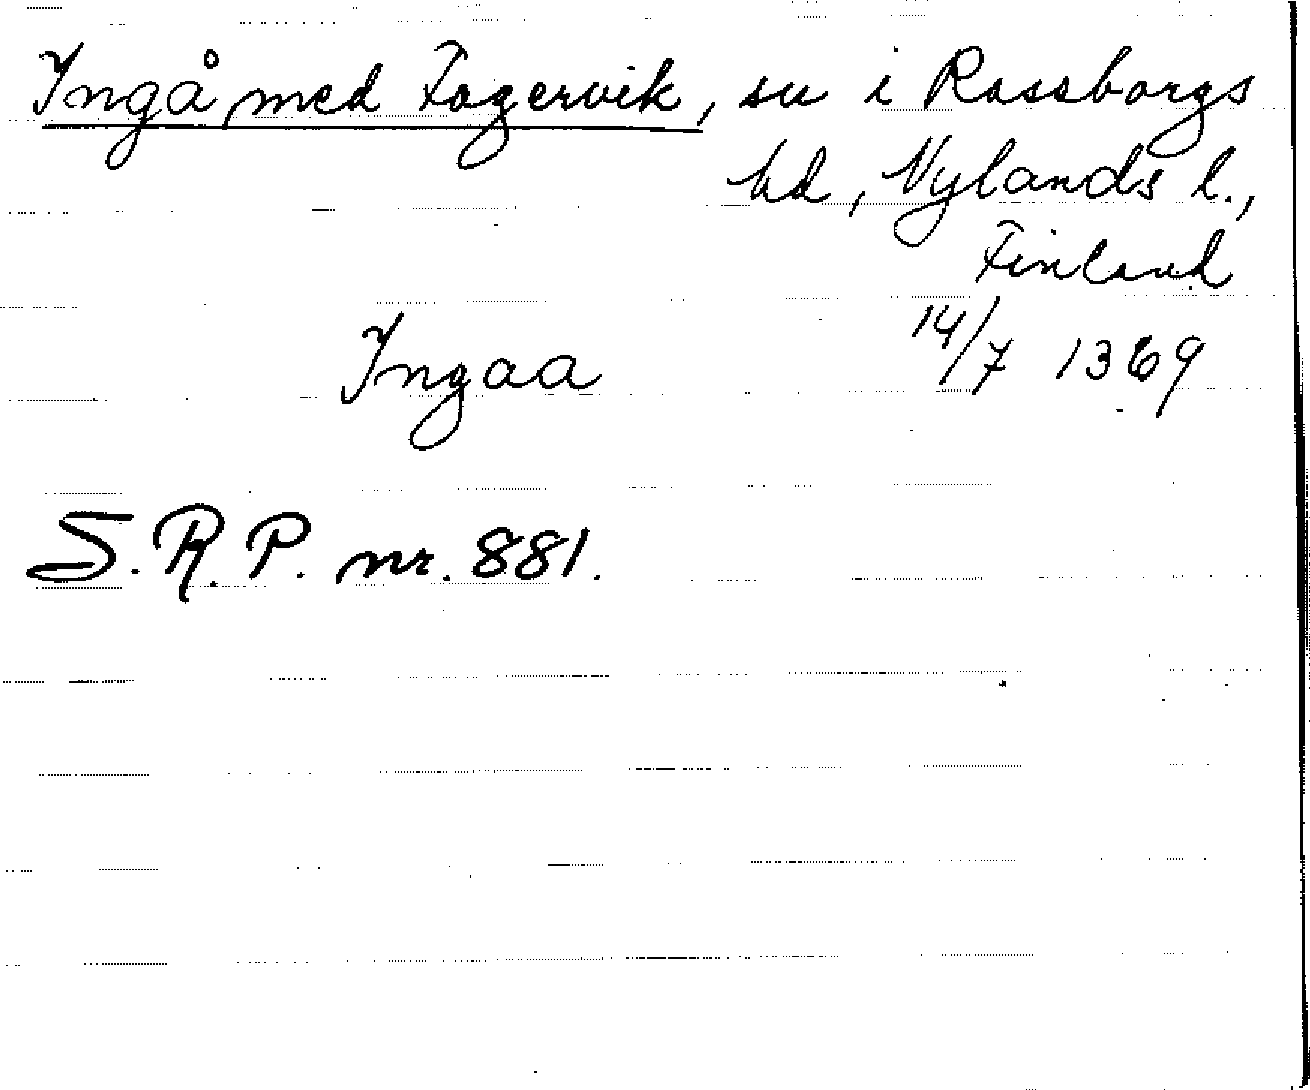 Ingå med Fagervik, su i Rassborgs
hd, Nylands l.,
Finland
Ingaa 14/7 1369
S.R.P. nr. 881.